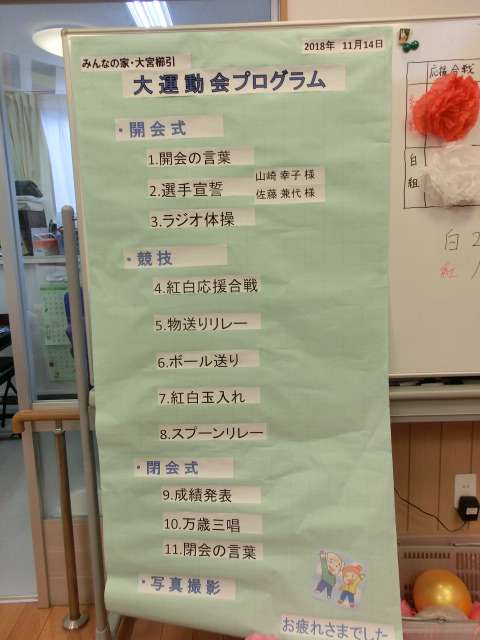 みんなの家・大宮櫛引
2018年 11月14日
大運動会プログラム
・開会式
1.開会の言葉
2.選手宣誓
山崎 幸子 様
佐藤 兼代 様
3.ラジオ体操
・競技
4.紅白応援合戦
5.物送りリレー
6.ボール送り
7.紅白玉入れ
8.スプーンリレー
・閉会式
9.成績発表
10.万歳三唱
11.閉会の言葉
・写真撮影
お疲れさまでした
応援合戦
白
組
白 2
紅